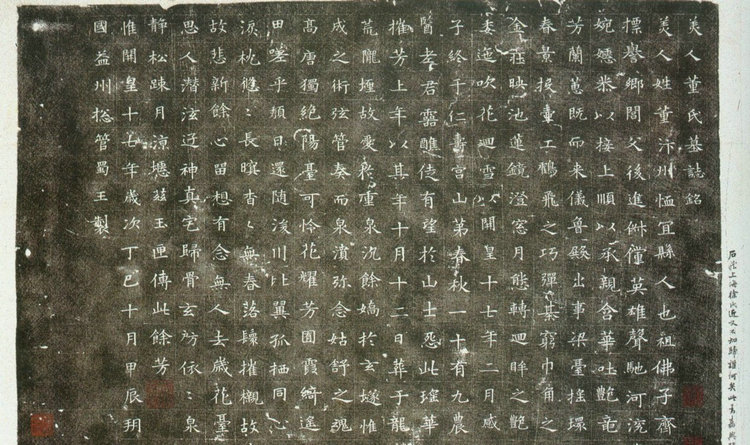 美人董氏墓誌銘
美人姓董汴州恤宜縣人也祖佛子齊
標譽鄉閭父後進俶儻英雄聲馳河渷
婉嫕恭以接上順以承親含華吐艷龍
芳蘭蕙既而來儀魯殿出事梁臺搖環
春景投壺工鶴飛之巧彈棊窮巾角之
金莊映池蓮鏡澄窻月態轉迴眸之艷
委迤吹花迴雪以開皇十七年二月感
子終于仁壽宮山第春秋一十有九農
醫老君靈醮徒有望於山士怨此瑤華
摧芳上年以其年十月十二日葬于龍
荒隴埋故愛於重泉沉餘嬌於玄隧惟
成之術弦管奏而泉濆彌念姑舒之魂
高唐獨絕陽臺可怜花耀芳囿霞綺遙
田嗟乎頹日還隨浚川比翼孤栖同心
淚枕悠〻長暝杳〻無春落鬟摧櫬故
故悲新餘心留想有念無人去歲花臺
思人潛泫迍神真宅歸骨玄房依〻泉
靜松疎月涼瘞茲玉匣傳此餘芳
惟開皇十七年歲次丁巳十月甲辰朔
國益州揔管蜀王製